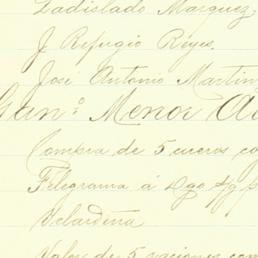 Ladislado Marquez,
J Refugio Reyes.
José Antonio Martin
Gan.º Menor A
Compra de 5 cueros co
Telegrama á Dgo. s/g
Velardeña
Valor de 5 raciones com